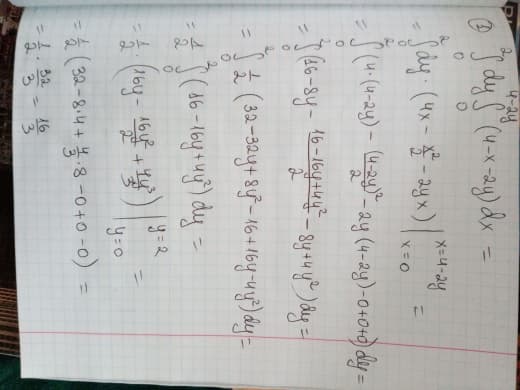 ③ ∫₀² dy ∫₀⁴⁻²ʸ (4-x-2y) dx =
= ∫₀² dy · (4x - x²/2 - 2yx) |ₓ₌₀ˣ⁼⁴⁻²ʸ =
= ∫₀² (4·(4-2y) - (4-2y)²/2 - 2y(4-2y) - 0+0+0) dy =
= ∫₀² (16-8y - (16-16y+4y²)/2 - 8y+4y²) dy =
= ∫₀² 1/2 (32-32y+8y²-16+16y-4y²) dy =
= 1/2 ∫₀² (16-16y+4y²) dy =
= 1/2 · (16y - 16y²/2 + 4y³/3) | y=2 y=0 =
= 1/2 (32-8·4+4/3·8-0+0-0) =
= 1/2 · 32/3 = 16/3